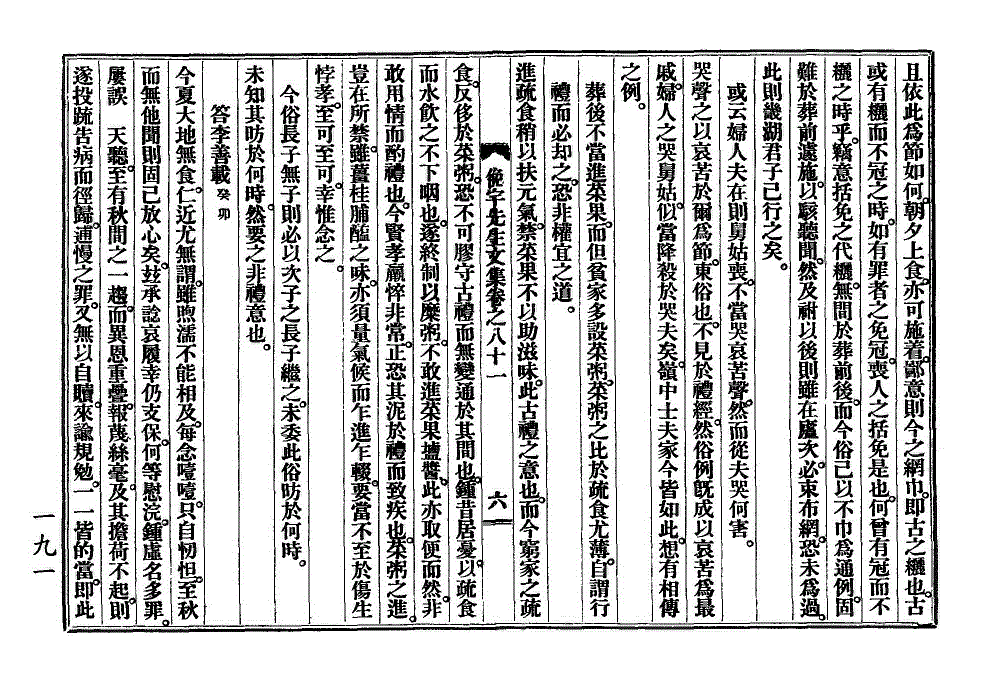 且依此爲節如何。朝夕上食。亦可施着。鄙意則今之網巾。卽古之纚也。古
或有纚而不冠之時。如有罪者之免冠。喪人之括免是也。何曾有冠而不
纚之時乎。竊意括免之代纚。無間於葬前後。而今俗已以不巾爲通例。固
難於葬前遽施。以駭聽聞。然及祔以後則雖在廬次。必束布網。恐未爲過。
此則畿湖君子已行之矣。
或云婦人夫在則舅姑喪。不當哭哀苦聲。然而從夫哭何害。
哭聲之以哀苦於爾爲節。東俗也。不見於禮經。然俗例旣成以哀苦爲最
戚。婦人之哭舅姑。似當降殺於哭夫矣。嶺中士夫家今皆如此。想有相傳
之例。
葬後不當進菜果。而但貧家多設菜粥。菜粥之比於疏食尤薄。自謂行
禮而必却之。恐非權宜之道。
進疏食稍以扶元氣。禁菜果不以助滋味。此古禮之意也。而今窮家之疏
俛宇先生文集卷之八十一
六
食。反侈於菜粥。恐不可膠守古禮而無變通於其間也。鍾昔居憂。以疏食
而水飮之不下咽也。遂終制以糜粥。不敢進菜果壇醬。此亦取便而然。非
敢用情而酌禮也。今賢孝羸悴非常。正恐其泥於禮而致疾也。菜粥之進。
豈在所禁。雖薑桂脯醢之味。亦須量氣候而乍進乍輟。要當不至於傷生
悖孝。至可至可。幸惟念之。
今俗長子無子則必以次子之長子繼之。未委此俗昉於何時。
未知其昉於何時。然要之非禮意也。
答李善載 癸卯
今夏大地無食。仁近尤無謂。雖煦濡不能相及。每念噎噎。只自忉怛。至秋
而無他聞則固已放心矣。玆承諗哀履幸仍支保。何等慰浣。鍾虛名多罪。
屢誤 天聽。至有秋間之一趨。而異恩重疊。報蔑絲毫。及其擔荷不起。則
遂投疏告病而徑歸。逋慢之罪。又無以自贖。來諭規勉。一一皆的當。卽此
一九一